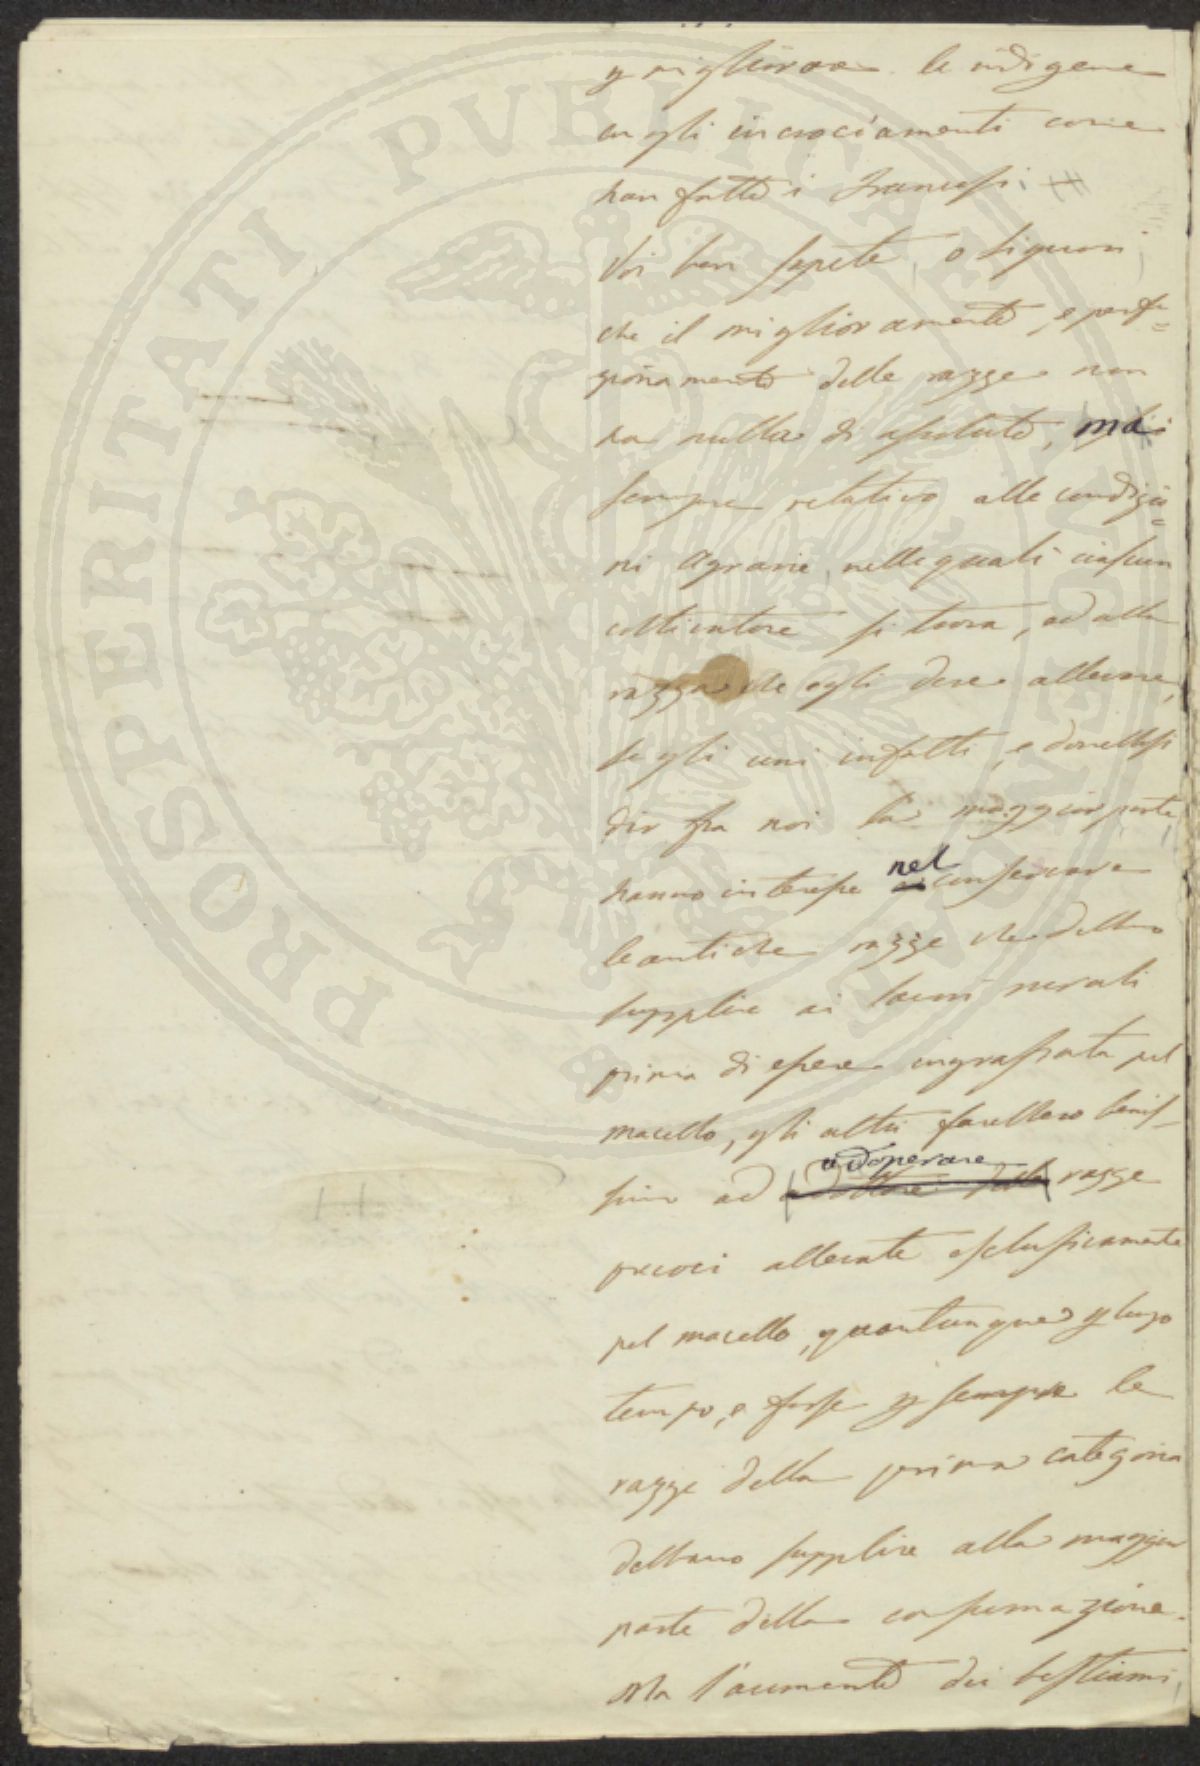 p migliorare le indigene
cogli incrociamenti come
han fatto i Francesi.
Voi ben sapete, o Signori,
che il miglioramento, e perfe=
zionamento delle razze non
ha nulla di assoluto, ma è
sempre relativo alle condizio=
ni agrarie, nelle quali ciascun
coltivatore si trova, ed alla
razza che egli deve allevare,
se gli uni infatti, e dovrebbesi
dir fra noi la maggior parte,
hanno interesse nel conservare
le antiche razze che debbano
supplire ai lavori rurali
prima di essere ingrassata pel
macello, gli altri farebbero benis-
simo ad adoperare razze
precoci allevate esclusivamente
pel macello, quantunque p lungo
tempo, e forse p sempre le
razze della prima categoria
debbano supplire alla maggior
parte della consumazione.
Ma l'aumento dei bestiami,
PROSPERITATI PUBLICAE AUGENDAE